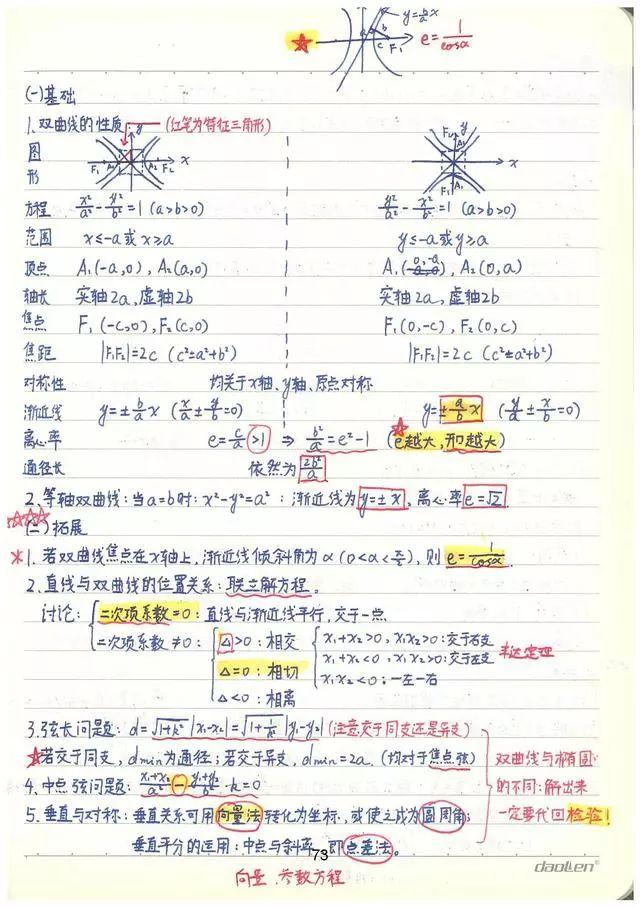 y=b/a x
a
c F₁
e=1/cosα
(一)基础
1.双曲线的性质 (红笔为特征三角形)
图形
F₁ A₁ A₂ F₂ x y
F₂ y x A₁ F₁
方程 x²/a²-y²/b²=1 (a>b>0) y²/a²-x²/b²=1 (a>b>0)
范围 x≤-a或x≥a y≤-a或y≥a
顶点 A₁(-a,0), A₂(a,0) A₁(0,-a), A₂(0,a)
轴长 实轴2a,虚轴2b 实轴2a,虚轴2b
焦点 F₁(-c,0), F₂(c,0) F₁(0,-c), F₂(0,c)
焦距 |F₁F₂|=2c (c²=a²+b²) |F₁F₂|=2c (c²=a²+b²)
对称性 均关于x轴、y轴、原点对称
渐近线 y=±b/a x (x/a±y/b=0) y=±a/b x (y/a±x/b=0)
离心率 e=c/a>1 ⇒ b²/a²=e²-1 (e越大,开口越大)
通径长 依然为2b²/a
2.等轴双曲线:当a=b时:x²-y²=a²:渐近线为y=±x,离心率e=√2.
(二)拓展
1.若双曲线焦点在x轴上,渐近线倾斜角为α(0<α<π/2),则e=1/cosα.
2.直线与双曲线的位置关系:联立解方程。
讨论:二次项系数=0:直线与渐近线平行,交于一点
二次项系数≠0:△>0:相交 x₁+x₂>0,x₁x₂>0:交于右支
x₁+x₂<0,x₁x₂>0:交于左支 韦达定理
△=0:相切 x₁x₂<0:一左一右
△<0:相离
3.弦长问题:d=√1+k²|x₁-x₂|=√1+1/k²|y₁-y₂|(注意交于同支还是异支)
若交于同支,dmin为通径;若交于异支,dmin=2a.(均对于焦点弦)
4.中点弦问题:x₁+x₂/a²-y₁+y₂/b²·k=0
双曲线与椭圆的不同:解出来一定要代回检验!
5.垂直与对称:垂直关系可用向量法转化为坐标,或使之成为圆周角;
垂直平分的运用:中点与斜率,即点差法。
73
向量、参数方程
daoLen®